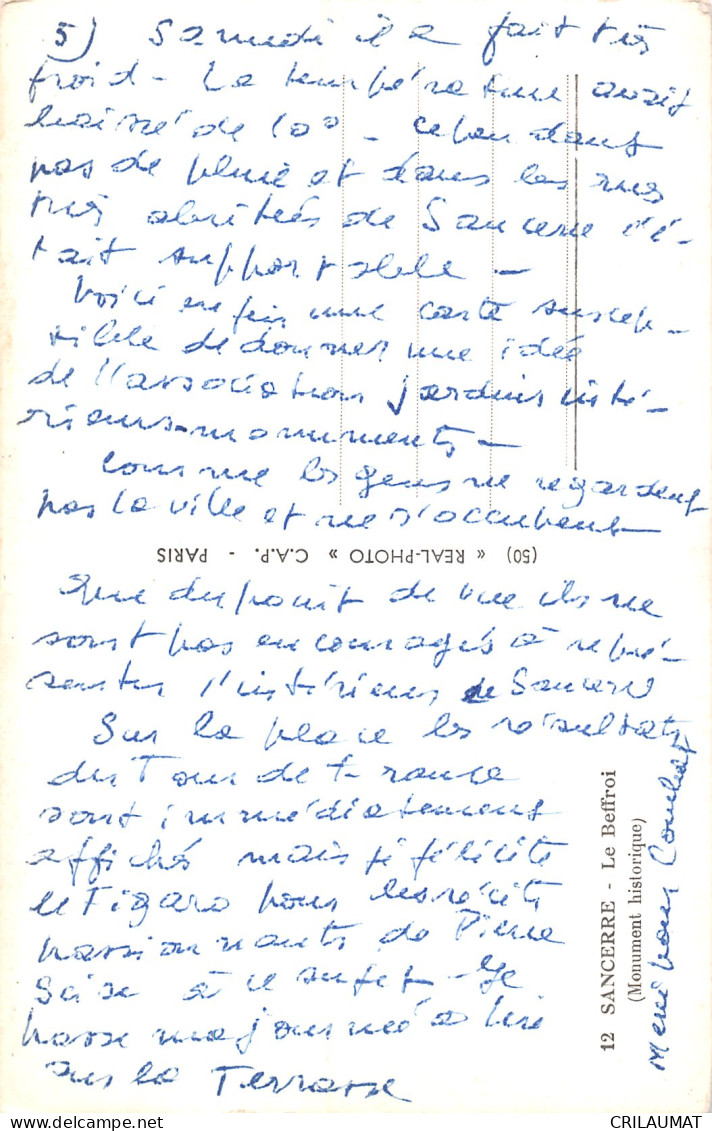 5) Samedi il a fait très
froid - La température avait
baissé de 10° - cependant
pas de pluie et dans les rues
très abritées de Sancerre c'é-
tait supportable -
Voici enfin une carte suscep-
tible de donner une idée
de l'association jardins inté-
rieurs-monuments -
Comme les gens ne regardent
pas la ville et ne s'occupent
(50) « REAL-PHOTO » C.A.P. - PARIS
que du point de vue ils ne
sont pas encouragés à repré-
senter l'intérieur de Sancerre
Sur la place les résultats
du Tour de France
sont immédiatement
affichés mais je félicite
le Figaro pour les récits
passionnants de Pierre
à ce sujet - Je
passe ma journée à lire
sur la Terrasse
12 SANCERRE - Le Beffroi
(Monument historique)
Merci pour
CRILAUMAT